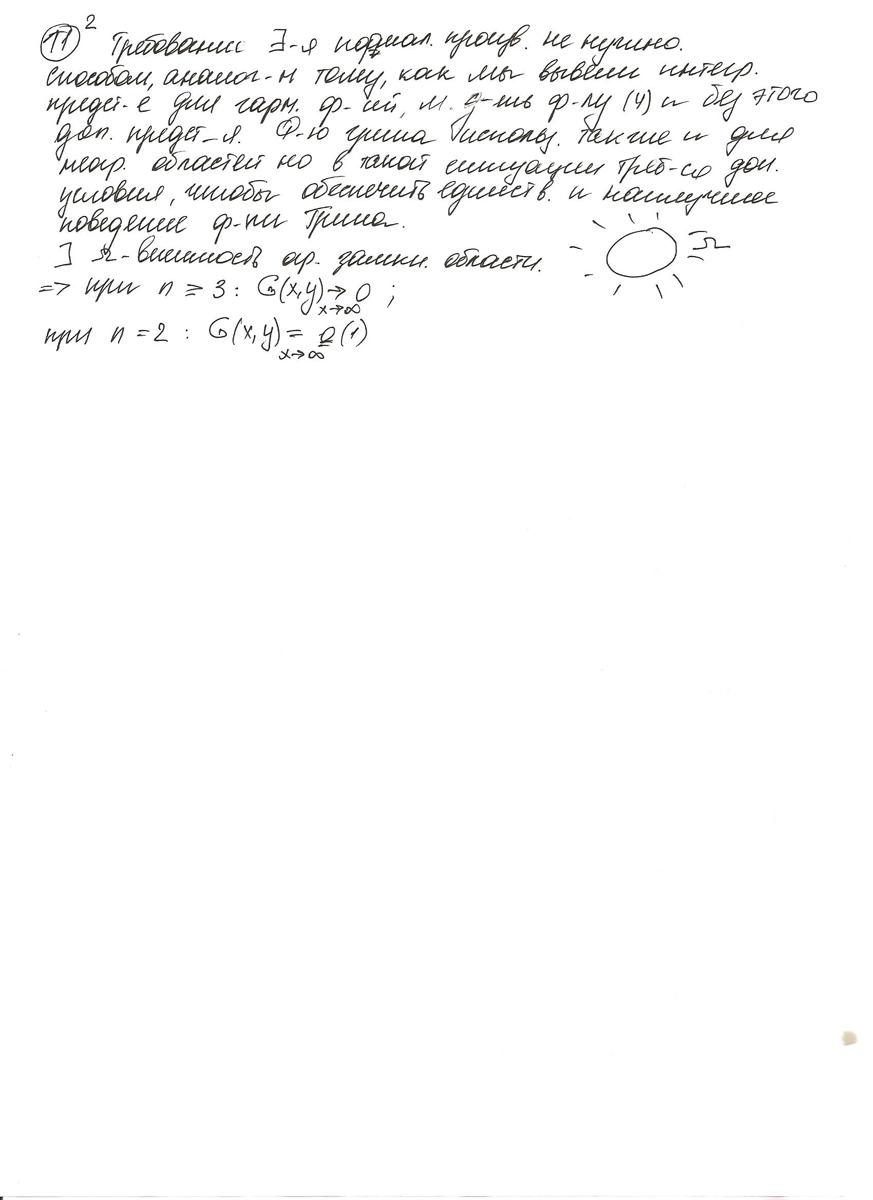 11 2 Требование ∃-я нормал. произв. не нужно.
способом, аналог-н тому, как мы вывели интегр.
предст-е для гарм. ф-ий, м. д-ть ф-лу (4) и без этого
доп. предст-я. Ф-ю грина использ. также и для
неогр. областей но в такой ситуации треб-ся доп.
условия, чтобы обеспечить единств. и наилучшее
поведение ф-ии Грина.
] Ω - внешность огр. замкн. области. Ω
=> при n ≥ 3 : G(x,y) → 0 ;
x→∞
при n = 2 : G(x,y) = O(1)
x→∞